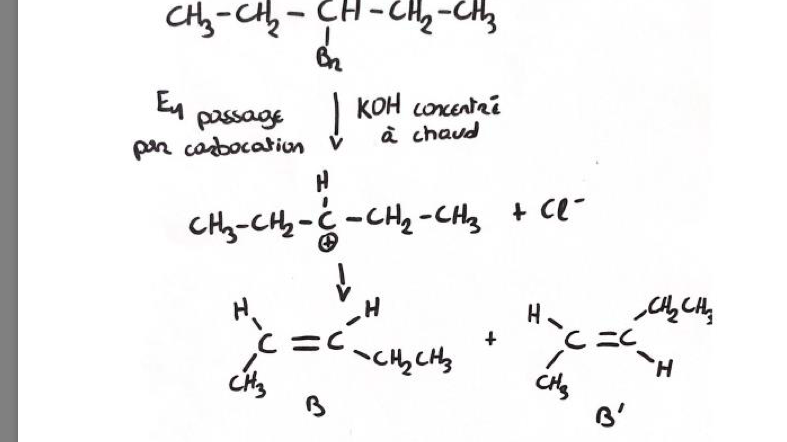 CH3-CH2-CH-CH2-CH3
Br
E1 passage
par carbocation
KOH concentré
à chaud
H
CH3-CH2-C-CH2-CH3 + Cl-
⊕
H H H CH2CH3
C=C + C=C
CH3 CH2CH3 CH3 H
B B'